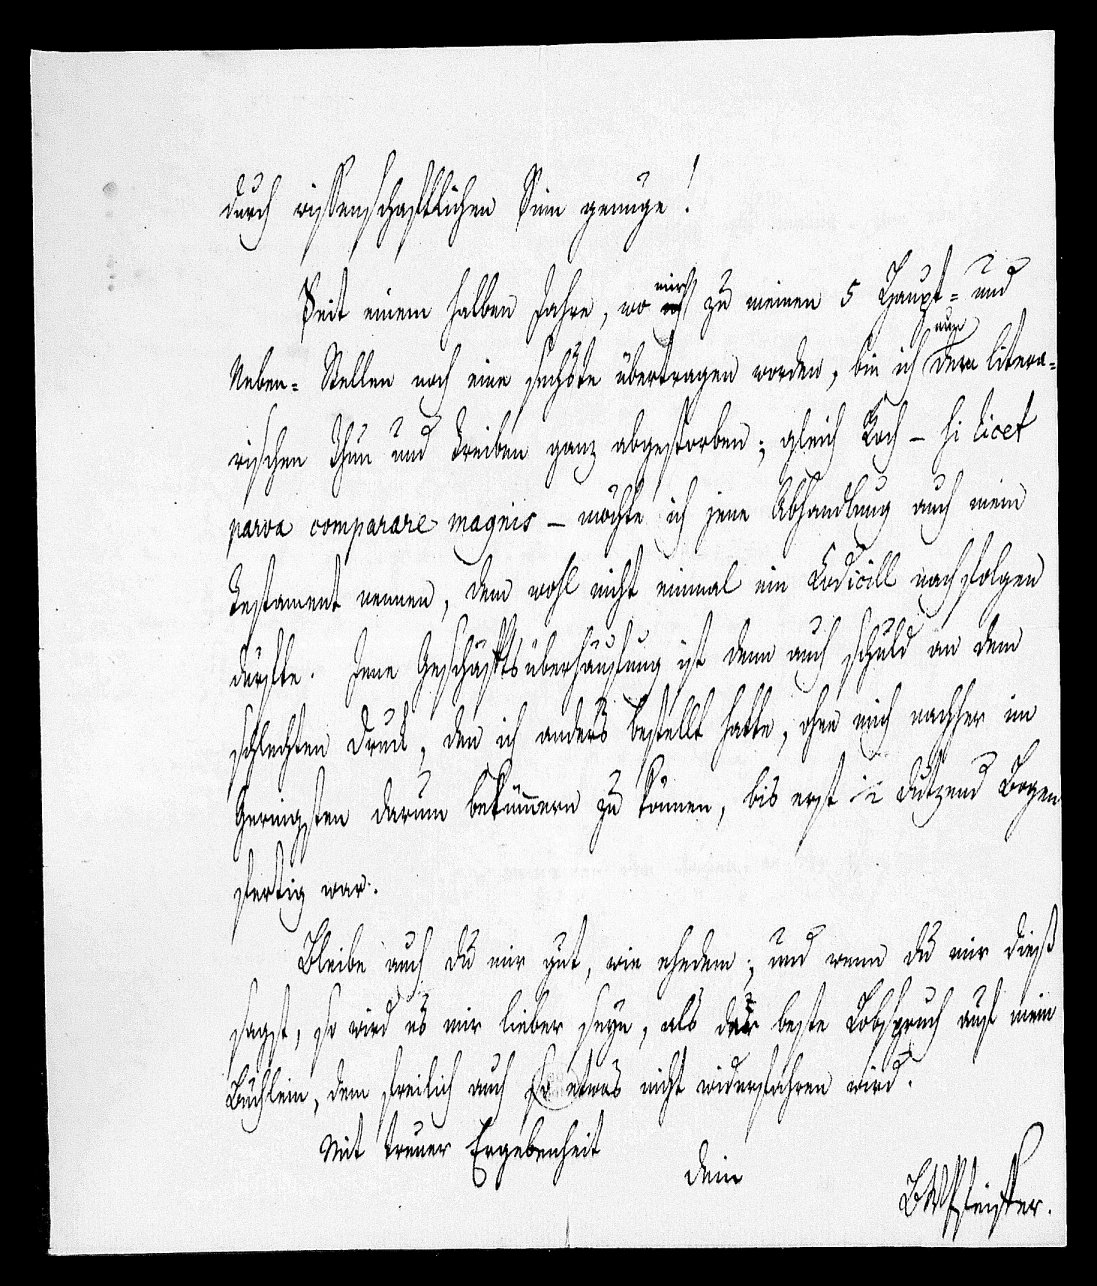 durch wissenschaftlichen Sinn genüge!
Seit einem halben Jahre, wo mir zu meinen 5 Haupt- und
Neben- Stellen noch eine sechste übertragen worden, bin ich nun dem litera-
rischen Thun und Treiben ganz abgestorben; gleich Koch – si licet
parva comparare magnis – möchte ich jene Abhandlung auch mein
Testament nennen, dem wohl nicht einmal ein Codicill nachfolgen
dürfte. Jene Geschäftsüberhäufung ist denn auch schuld an dem
schlechten Druck, den ich anders bestellt hatte, ohne mich nachher im
Geringsten darum bekümmern zu können, bis erst ½ Dutzend Bogen
fertig war.
Bleibe auch du mir gut, wie ehedem; und wenn du mir dieß
sagst, so wird es mir lieber seyn, als der beste Lobspruch auf mein
Büchlein, dem freilich auch so etwas nicht widerfahren wird.
Mit treuer Ergebenheit
dein
BWPfeiffer.